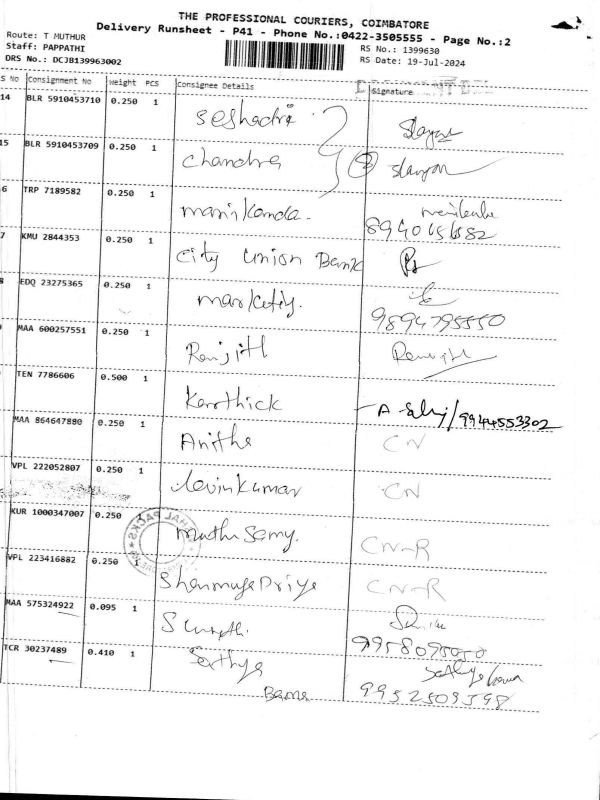 THE PROFESSIONAL COURIERS, COIMBATORE
Delivery Runsheet - P41 - Phone No.:0422-3505555 - Page No.:2
Route: T MUTHUR
Staff: PAPPATHI
RS No.: 1399630
DRS No.: DCJB139963002
RS Date: 19-Jul-2024
S No Consignment No Weight PCS Consignee Details Signature
14 BLR 5910453710 0.250 1 Seshadri
15 BLR 5910453709 0.250 1 Chandra 2
6 TRP 7189582 0.250 1 manikanda. 8940656582
7 KMU 2844353 0.250 1 City Union Bank
8 EDQ 23275365 0.250 1 marketiy. 9894795550
MAA 600257551 0.250 1 Ranjith
TEN 7786606 0.500 1 Karthick 9944553302
MAA 864647880 0.250 1 Anitha CN
VPL 222052807 0.250 1 Navinkumar CN
KUR 1000347007 0.250 muthu Samy. CN-R
VPL 223416882 0.250 1 Shanmuga Priya CN-R
MAA 575324922 0.095 1 9958095050
TCR 30237489 0.410 1 Sathya
Bama 9952509598